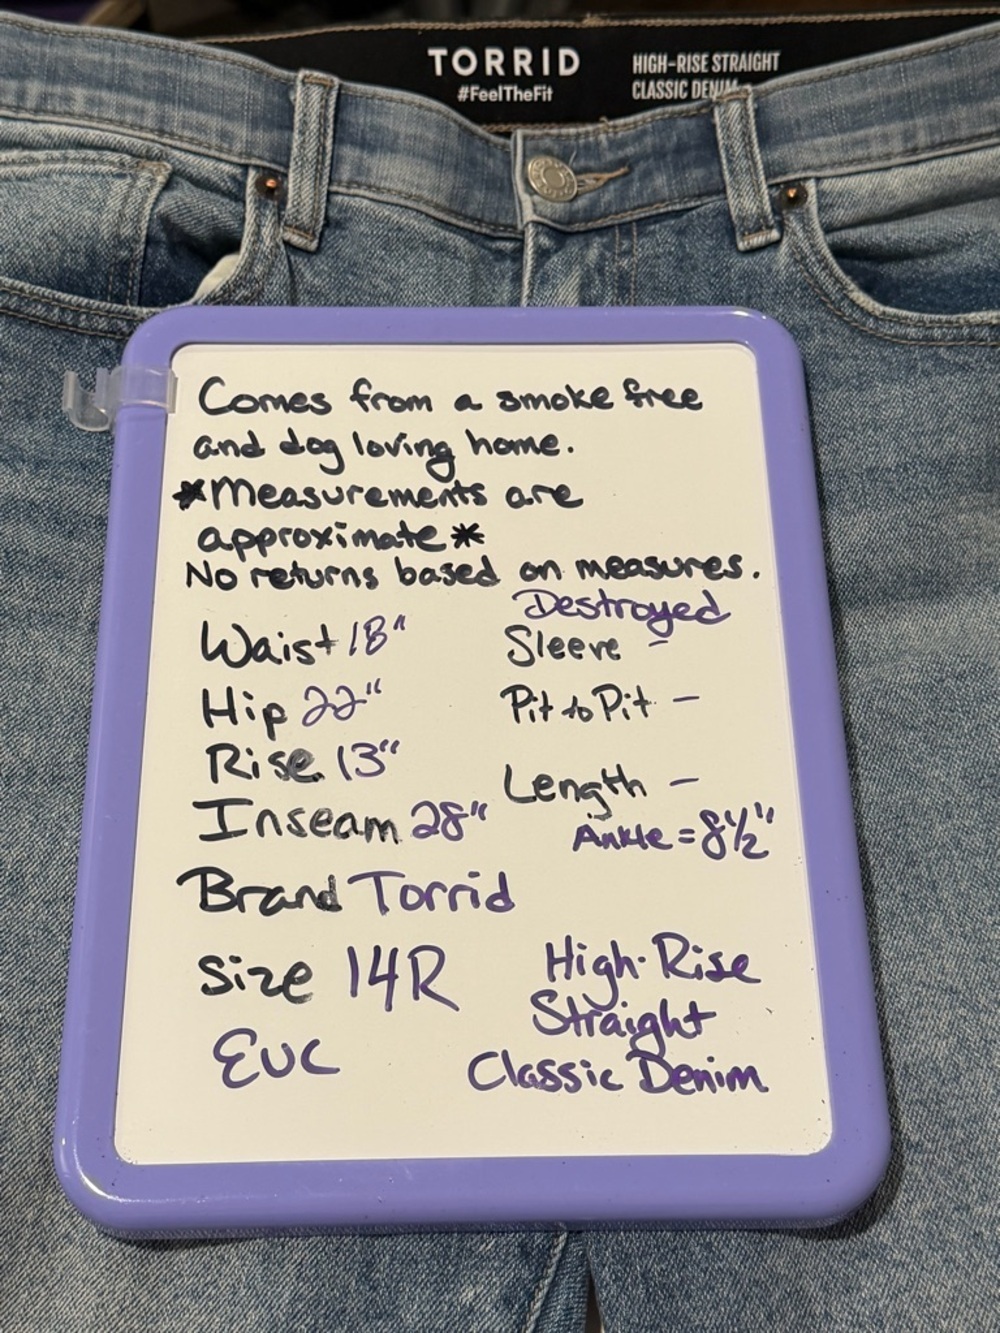 TORRID
#FeelTheFit
HIGH-RISE STRAIGHT
CLASSIC DENIM
Comes from a smoke free
and dog loving home.
*Measurements are
approximate*
No returns based on measures.
Destroyed
Waist 18"
Hip 22"
Rise 13"
Inseam 28"
Sleeve -
Pit to Pit -
Length -
Ankle = 8½"
Brand Torrid
Size 14R
EUC
High-Rise
Straight
Classic Denim